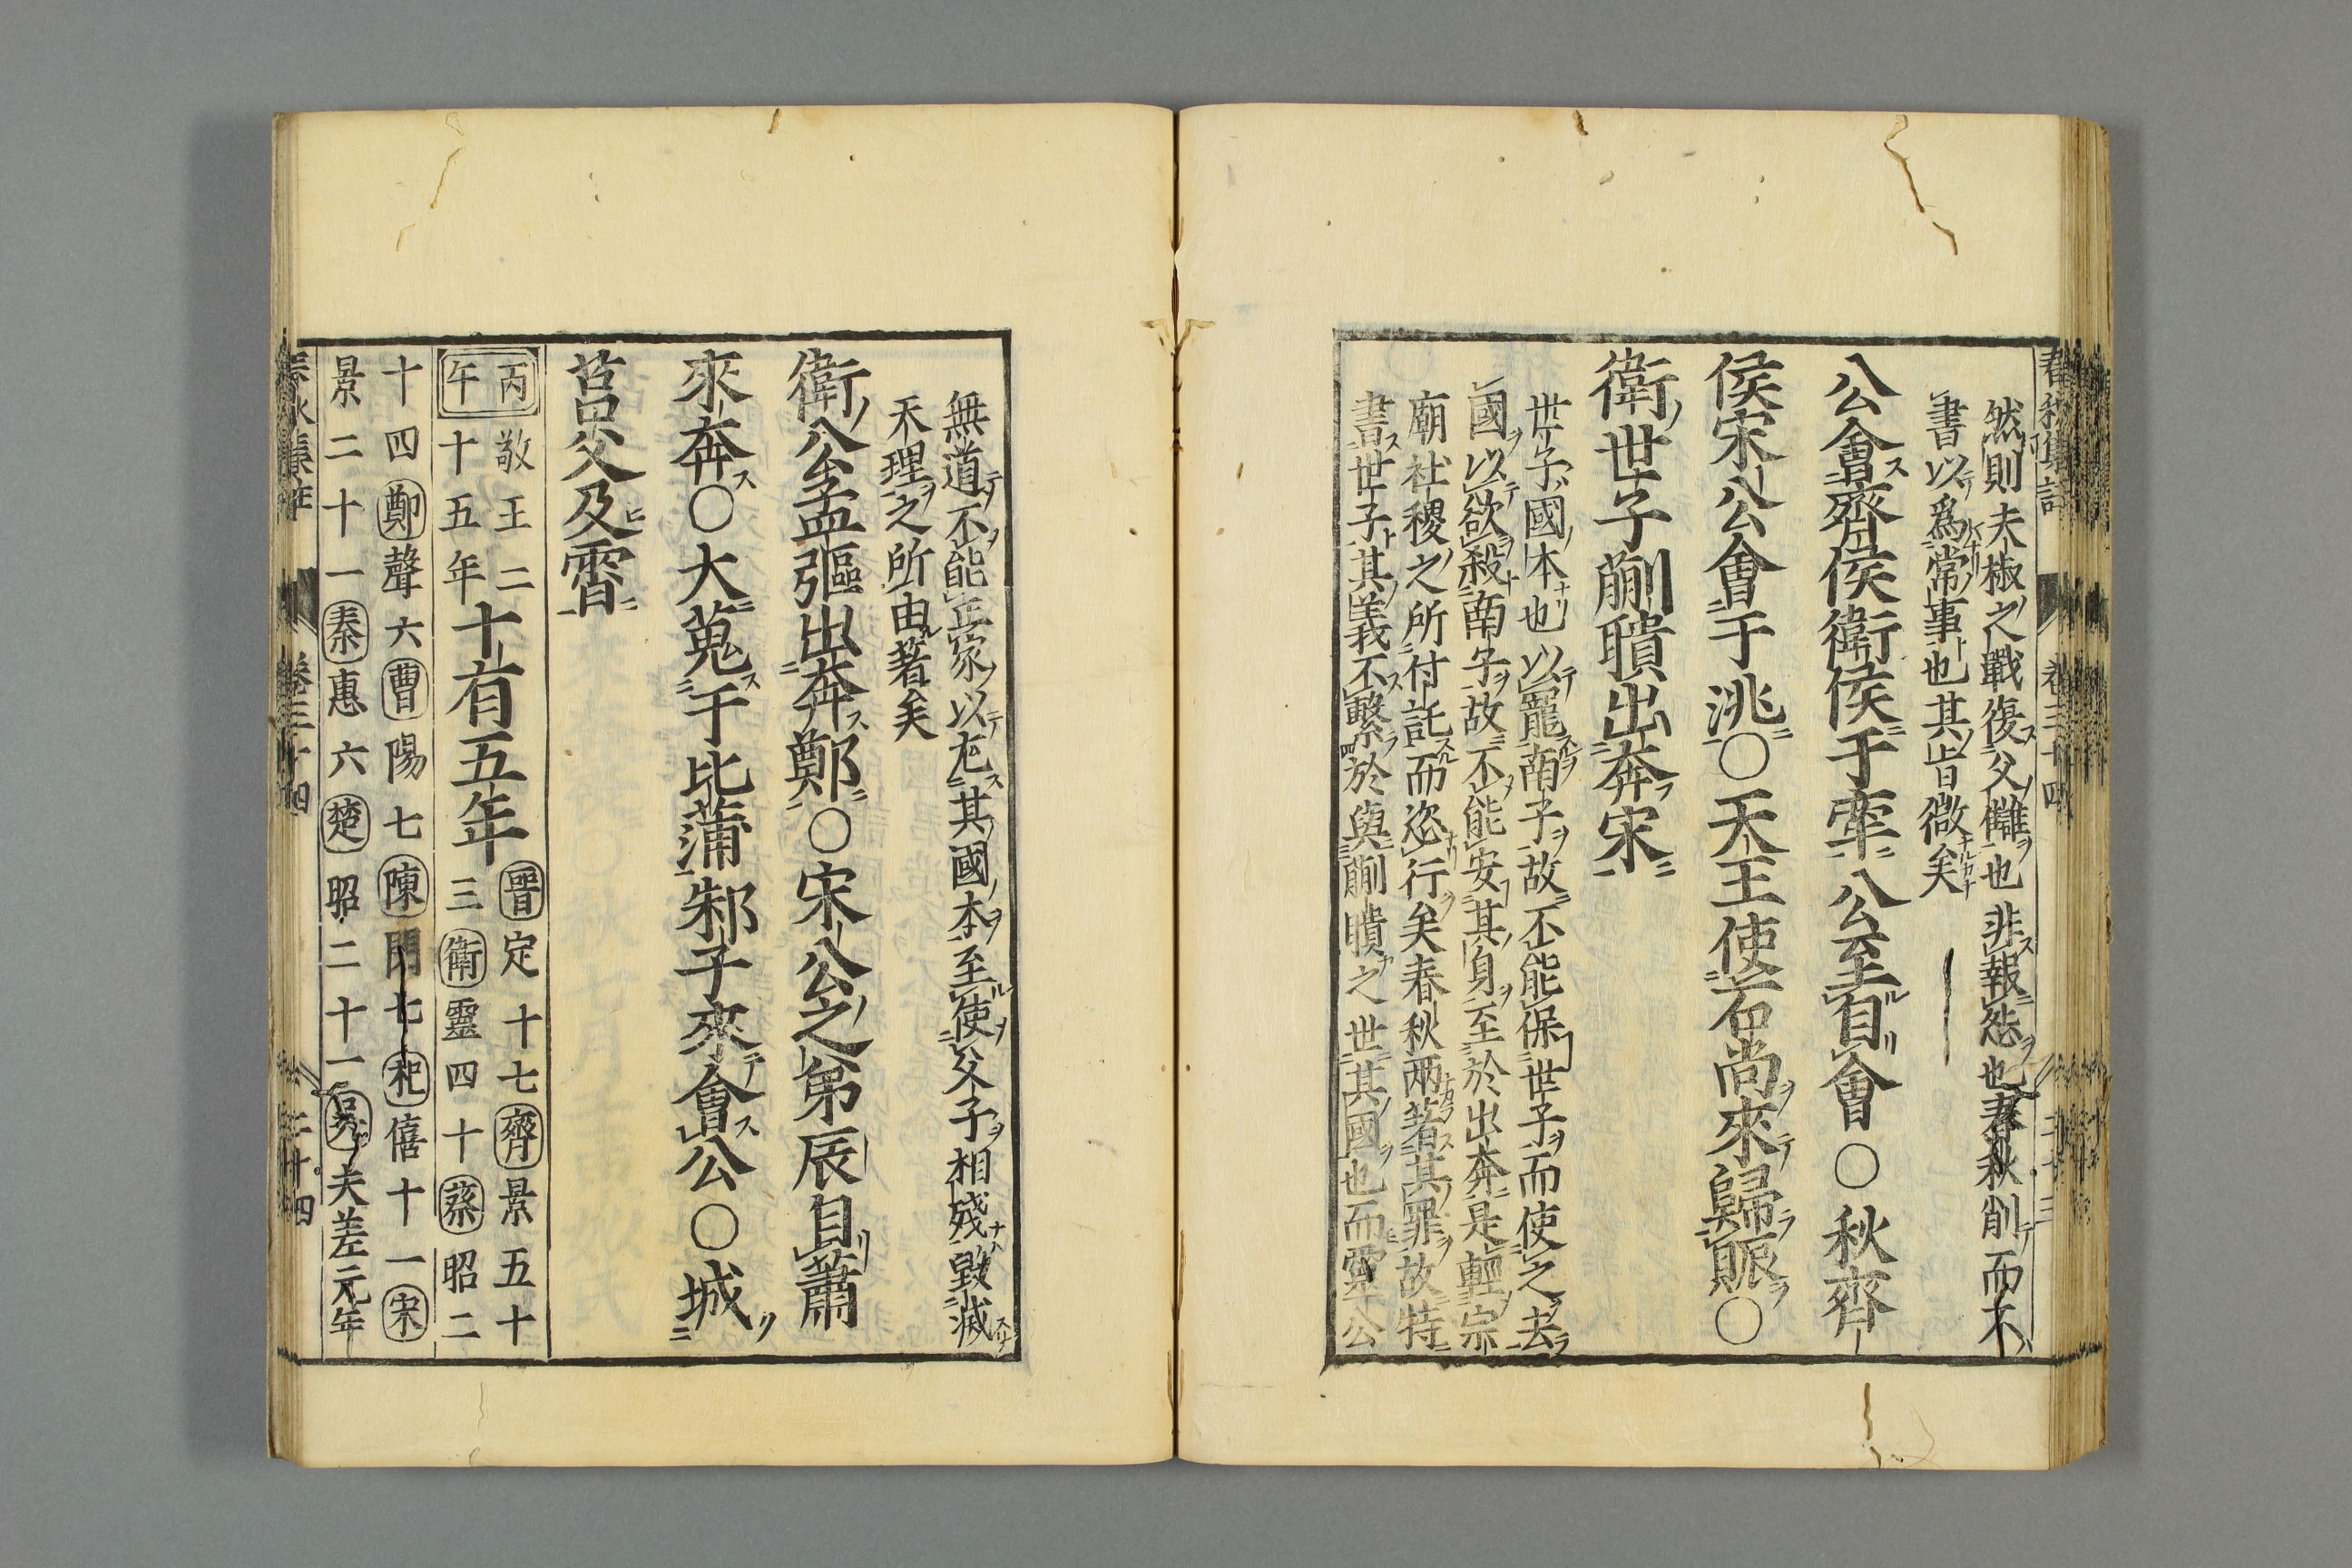 然則夫椒之戰復父讎也非報怨也春秋削而不
書以爲常事也其旨微矣
公會齊侯衛侯于牽公至自會○秋齊
侯宋公會于洮○天王使石尚來歸脤○
衛世子蒯聵出奔宋
世子國本也以寵南子故不能保世子而使之去
國以欲殺南子故不能安其身至於出奔是輕宗
廟社稷之所付託而恣行矣春秋兩著其罪故特
書世子其義不繫於與蒯聵之世其國也而靈公
無道不能正家以危其國本至使父子相殘毀滅
天理之所由著矣
衛公孟彄出奔鄭○宋公之弟辰自蕭
來奔○大蒐于比蒲邾子來會公○城
莒父及霄
丙午敬王二十五年十有五年晉定十七齊景五十三衛靈四十蔡昭二
十四鄭聲六曹陽七陳閔七杞僖十一宋
景二十一秦惠六楚昭二十一吳夫差元年
春秋集註 卷三十四